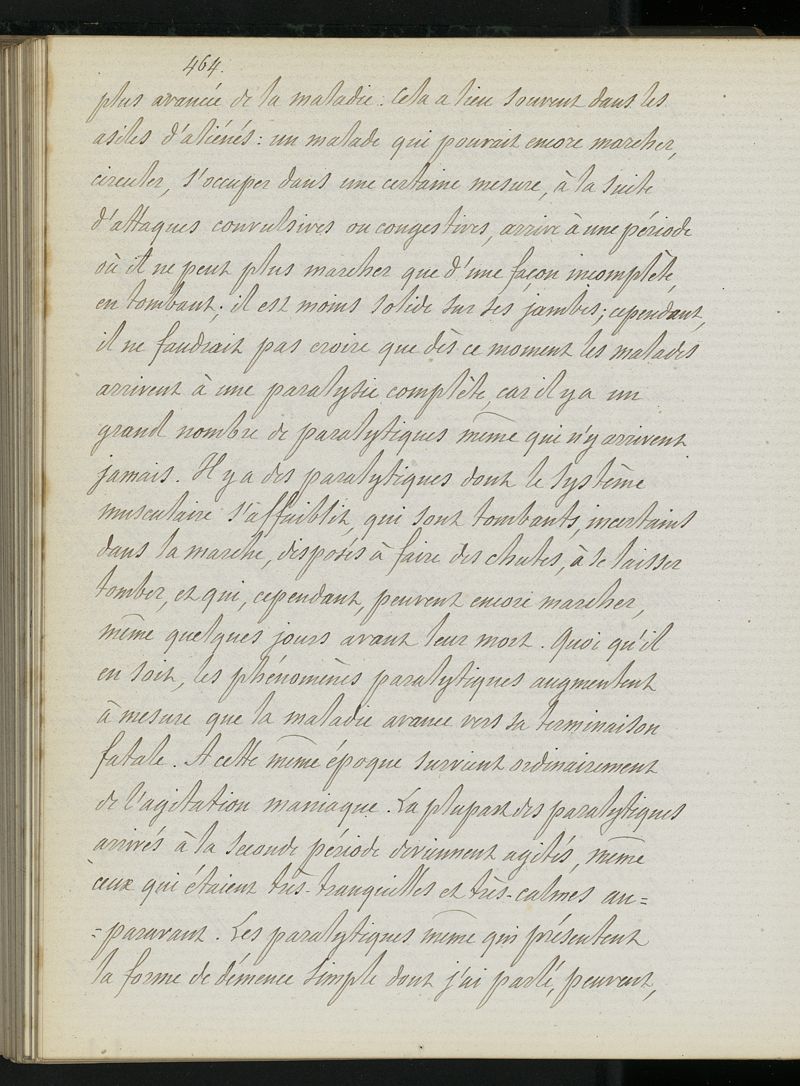 464.
plus avancée de la maladie. Cela a lieu souvent dans les
asiles d'aliénés : un malade qui pouvait encore marcher,
circuler, s'occuper dans une certaine mesure, à la suite
d'attaques convulsives ou congestives, arrive à une période
où il ne peut plus marcher que d'une façon incomplète,
en tombant ; il est moins solide sur ses jambes ; cependant,
il ne faudrait pas croire que dès ce moment les malades
arrivent à une paralysie complète, car il y a un
grand nombre de paralytiques même qui n'y arrivent
jamais. Il y a des paralytiques dont le système
musculaire s'affaiblit, qui sont tombants, incertains
dans la marche, disposés à faire des chutes, à se laisser
tomber, et qui, cependant, peuvent encore marcher,
même quelques jours avant leur mort. Quoi qu'il
en soit, les phénomènes paralytiques augmentent
à mesure que la maladie avance vers sa terminaison
fatale. A cette même époque survient ordinairement
de l'agitation maniaque. La plupart des paralytiques
arrivés à la seconde période deviennent agités, même
ceux qui étaient très-tranquilles et très-calmes au=
=paravant. Les paralytiques même qui présentent
la forme de démence simple dont j'ai parlé, peuvent,